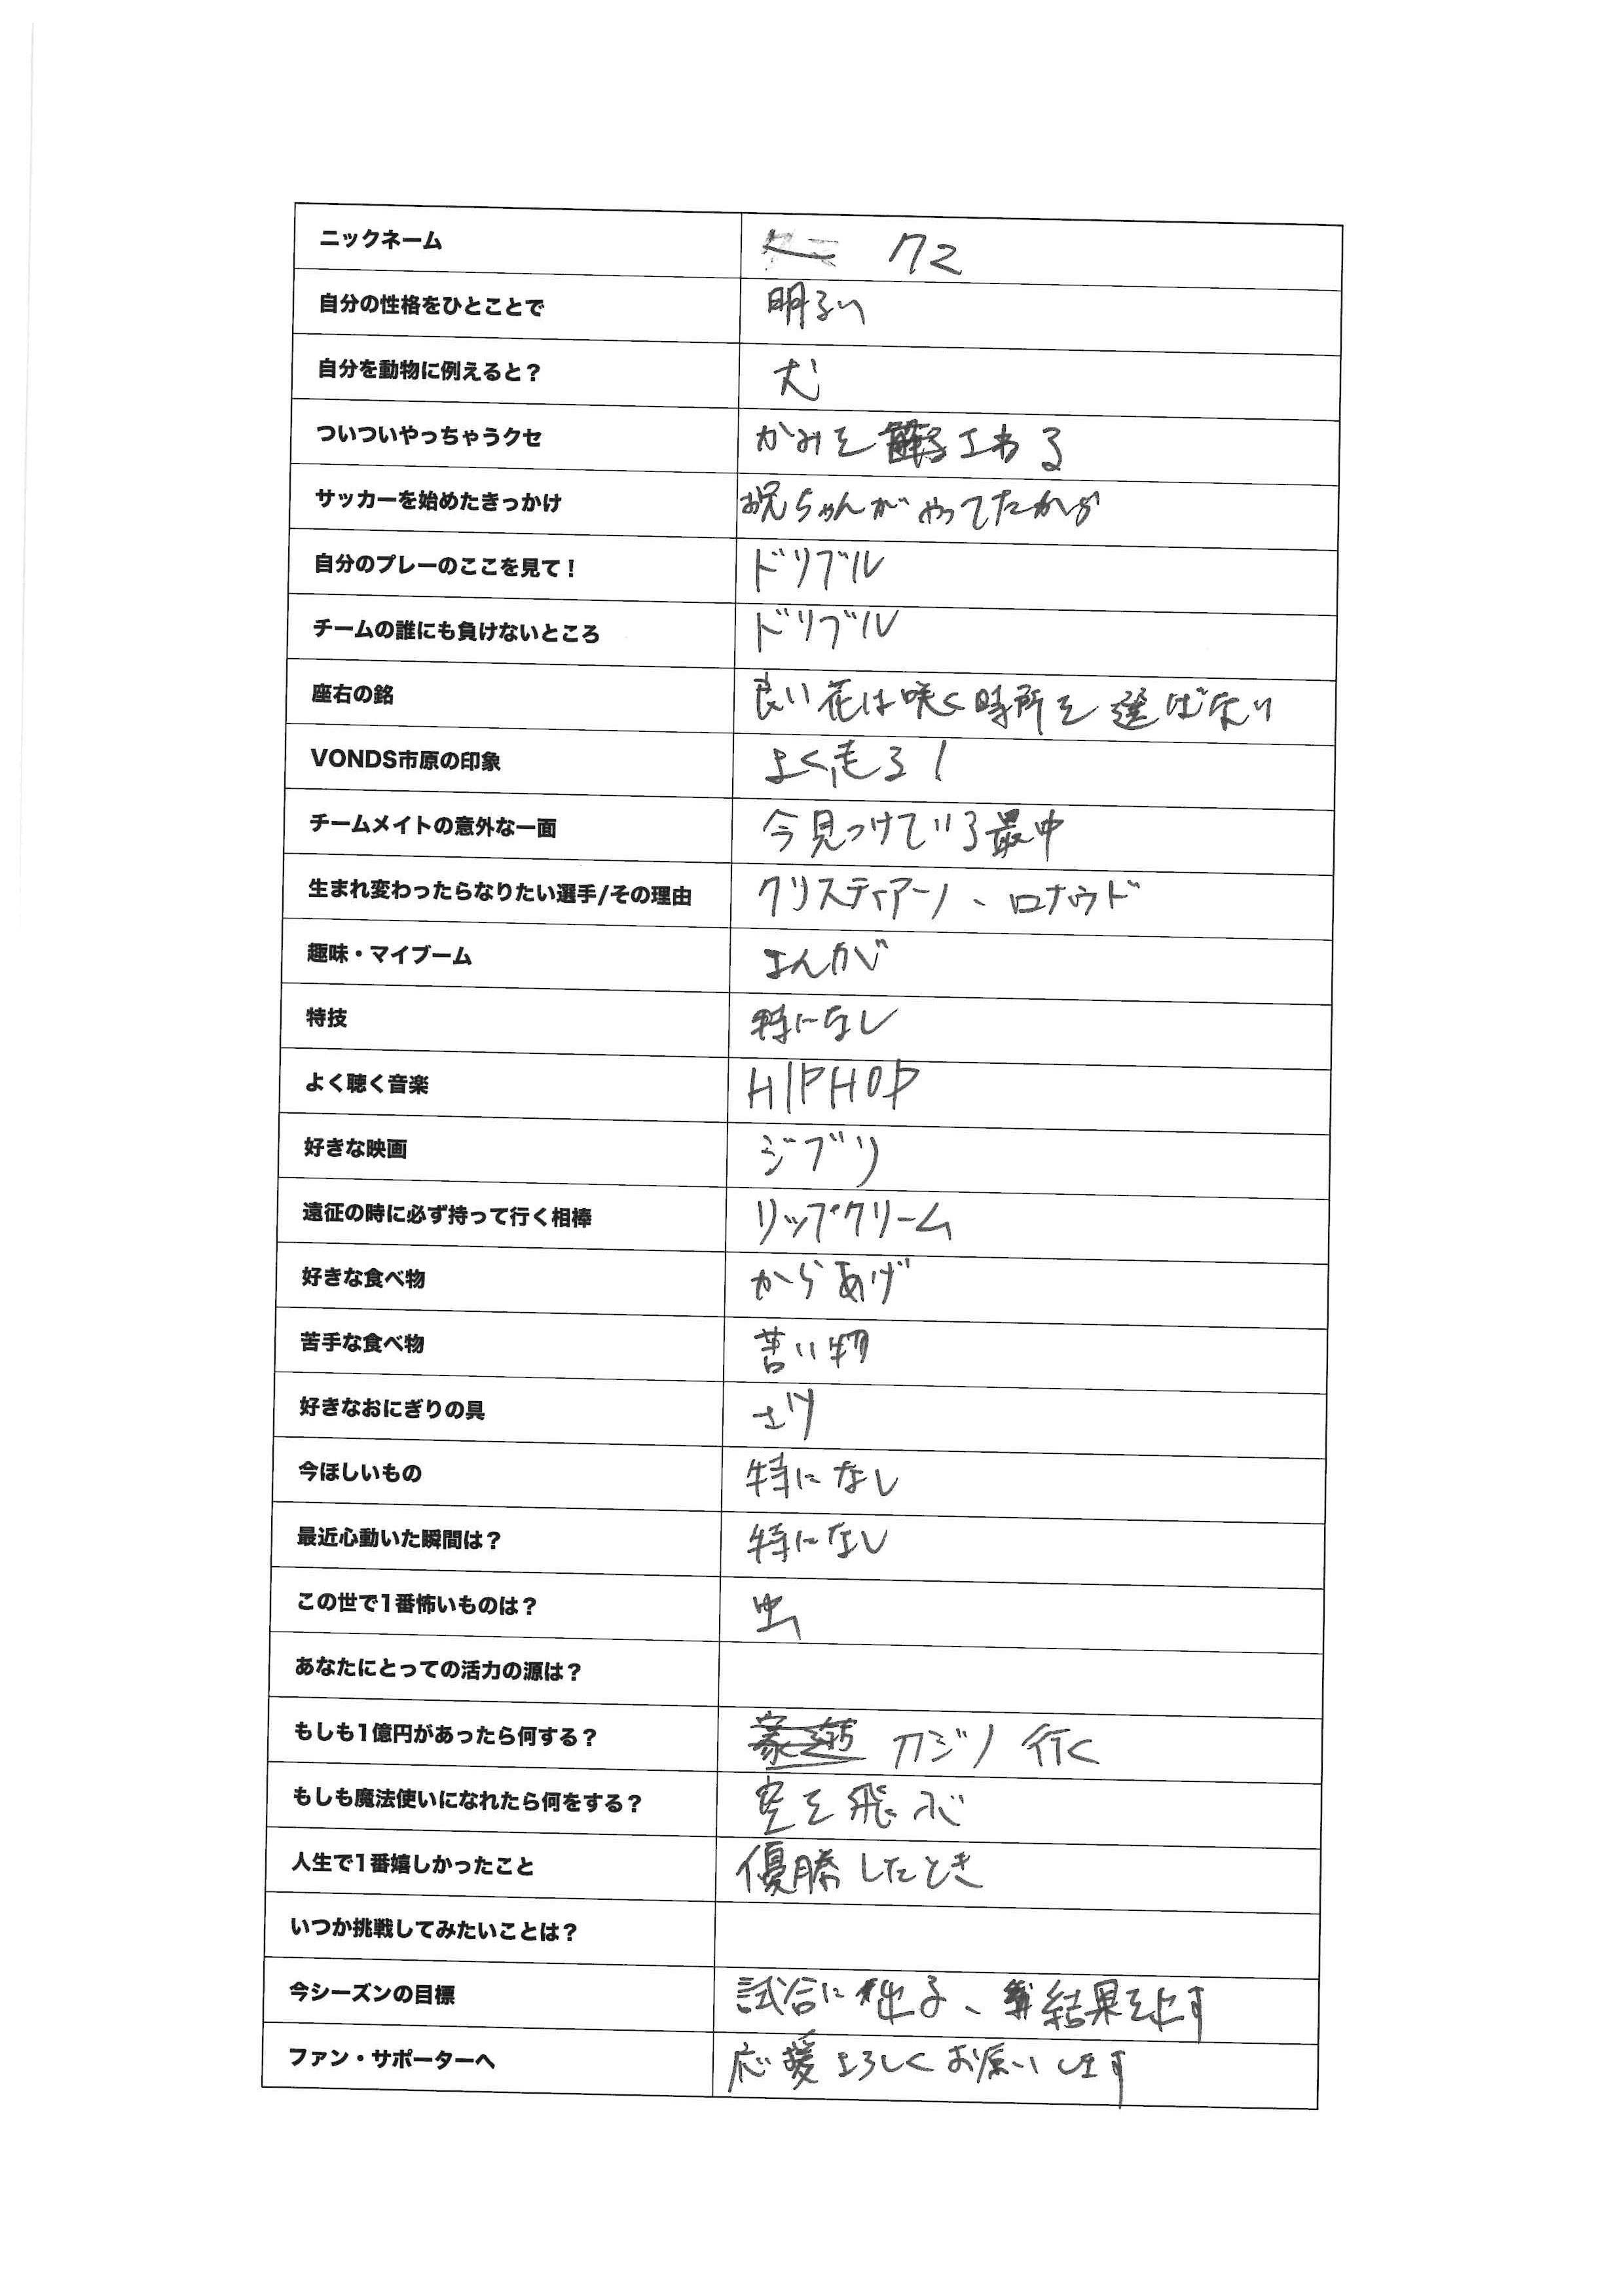 ニックネーム
自分の性格をひとことで 明るい
自分を動物に例えると？ 犬
ついついやっちゃうクセ かみを さわる
サッカーを始めたきっかけ お兄ちゃんがやってたから
自分のプレーのここを見て！ ドリブル
チームの誰にも負けないところ ドリブル
座右の銘 良い花は咲く時所を選ばない
VONDS市原の印象 よく走る！
チームメイトの意外な一面 今見つけている最中
生まれ変わったらなりたい選手/その理由 クリスティアーノ、ロナウド
趣味・マイブーム まんが
特技 特になし
よく聴く音楽 HIPHOP
好きな映画 ジブリ
遠征の時に必ず持って行く相棒 リップクリーム
好きな食べ物 からあげ
苦手な食べ物 苦い物
好きなおにぎりの具
今ほしいもの 特になし
最近心動いた瞬間は？ 特になし
この世で1番怖いものは？ 虫
あなたにとっての活力の源は？
もしも1億円があったら何する？ カジノ 行く
もしも魔法使いになれたら何をする？ 空を飛ぶ
人生で1番嬉しかったこと 優勝したとき
いつか挑戦してみたいことは？
今シーズンの目標 試合に出る、結果を出す
ファン・サポーターへ 応援よろしくお願いします